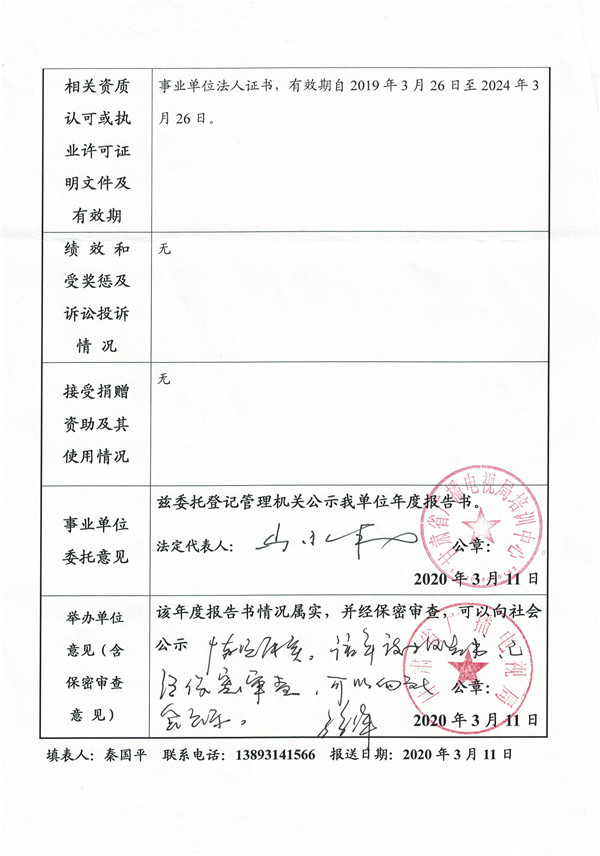 相关资质
认可或执
业许可证
明文件及
有效期
事业单位法人证书，有效期自 2019 年 3 月 26 日至 2024 年 3
月 26 日。
绩 效 和
受奖惩及
诉讼投诉
情 况
无
接受捐赠
资助及其
使用情况
无
事业单位
委托意见
兹委托登记管理机关公示我单位年度报告书。
法定代表人：
公章：
2020 年 3 月 11 日
甘肃省广播电视局培训中心
举办单位
意见（含
保密审查
意 见）
该年度报告书情况属实，并经保密审查，可以向社会
公示
情况属实。该年度报告书已
经保密审查，可以向社
会公示。
公章：
2020 年 3 月 11 日
甘肃省广播电视局
填表人：秦国平 联系电话：13893141566 报送日期：2020 年 3 月 11 日